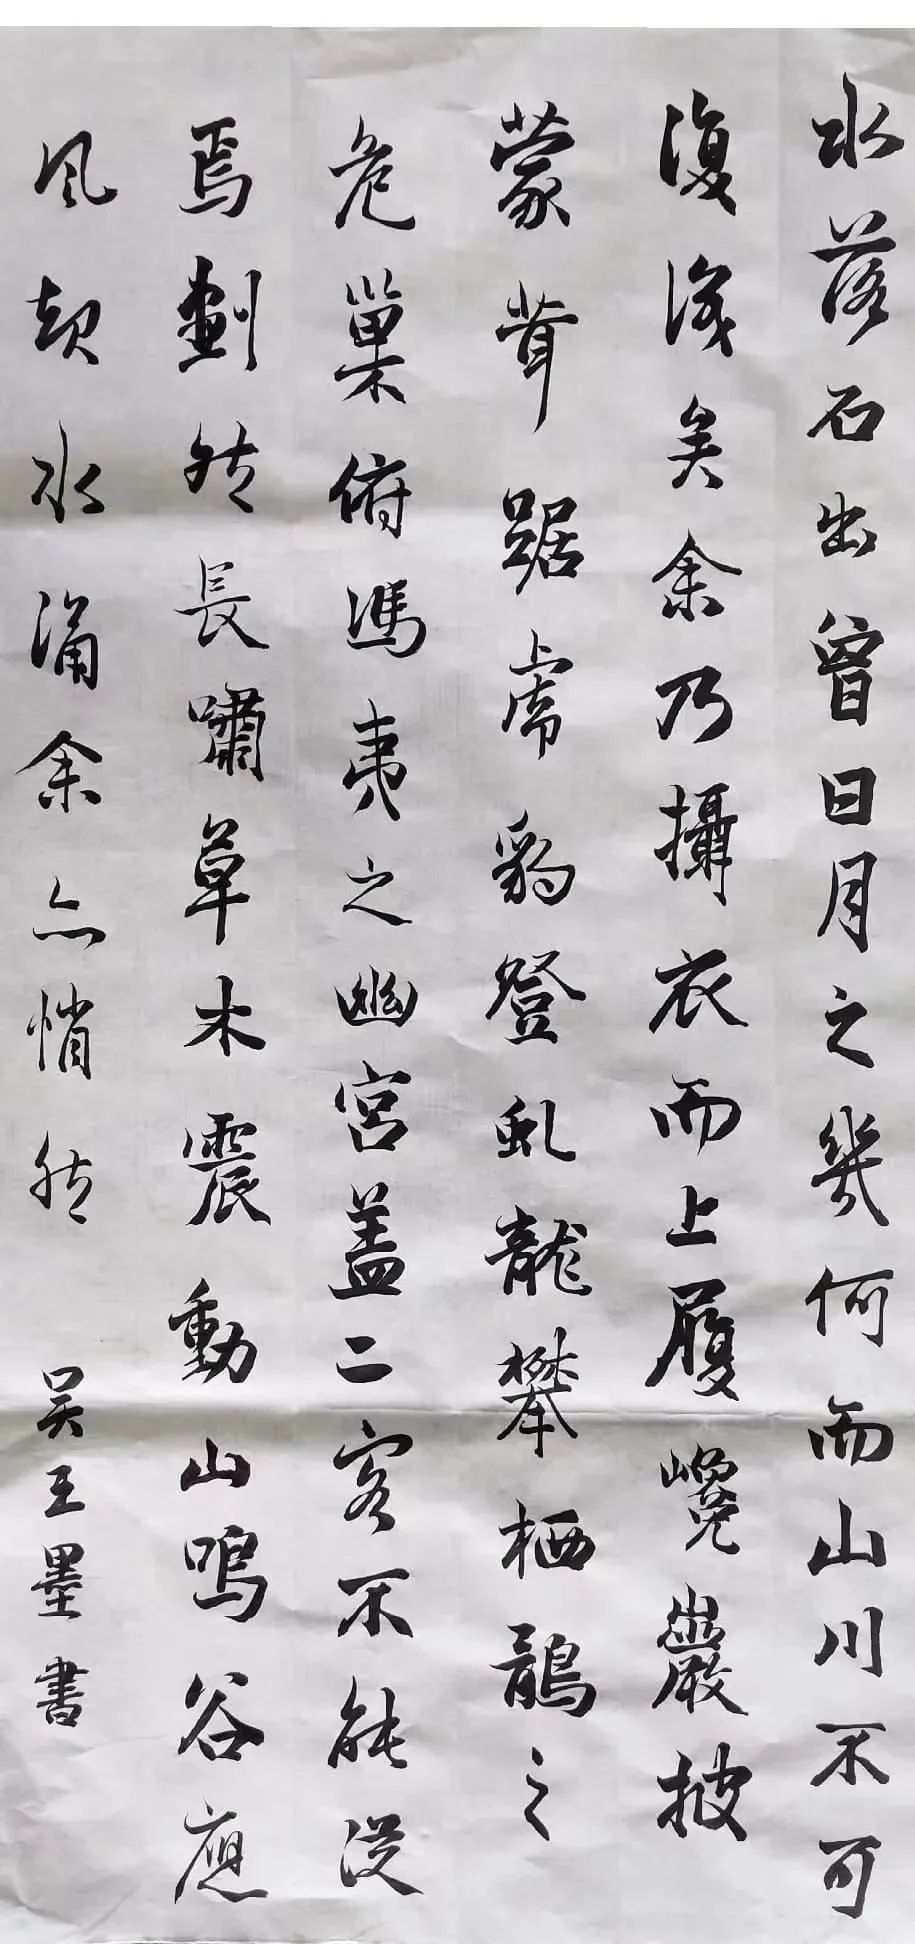 水落石出曾日月之幾何而山川不可
復識矣余乃攝衣而上履巉巖披
蒙茸踞虎豹登虬龍攀栖鶻之
危巢俯馮夷之幽宮盖二客不能從
焉劃然長嘯草木震動山鳴谷應
風起水涌余亦悄然
吴王墨書